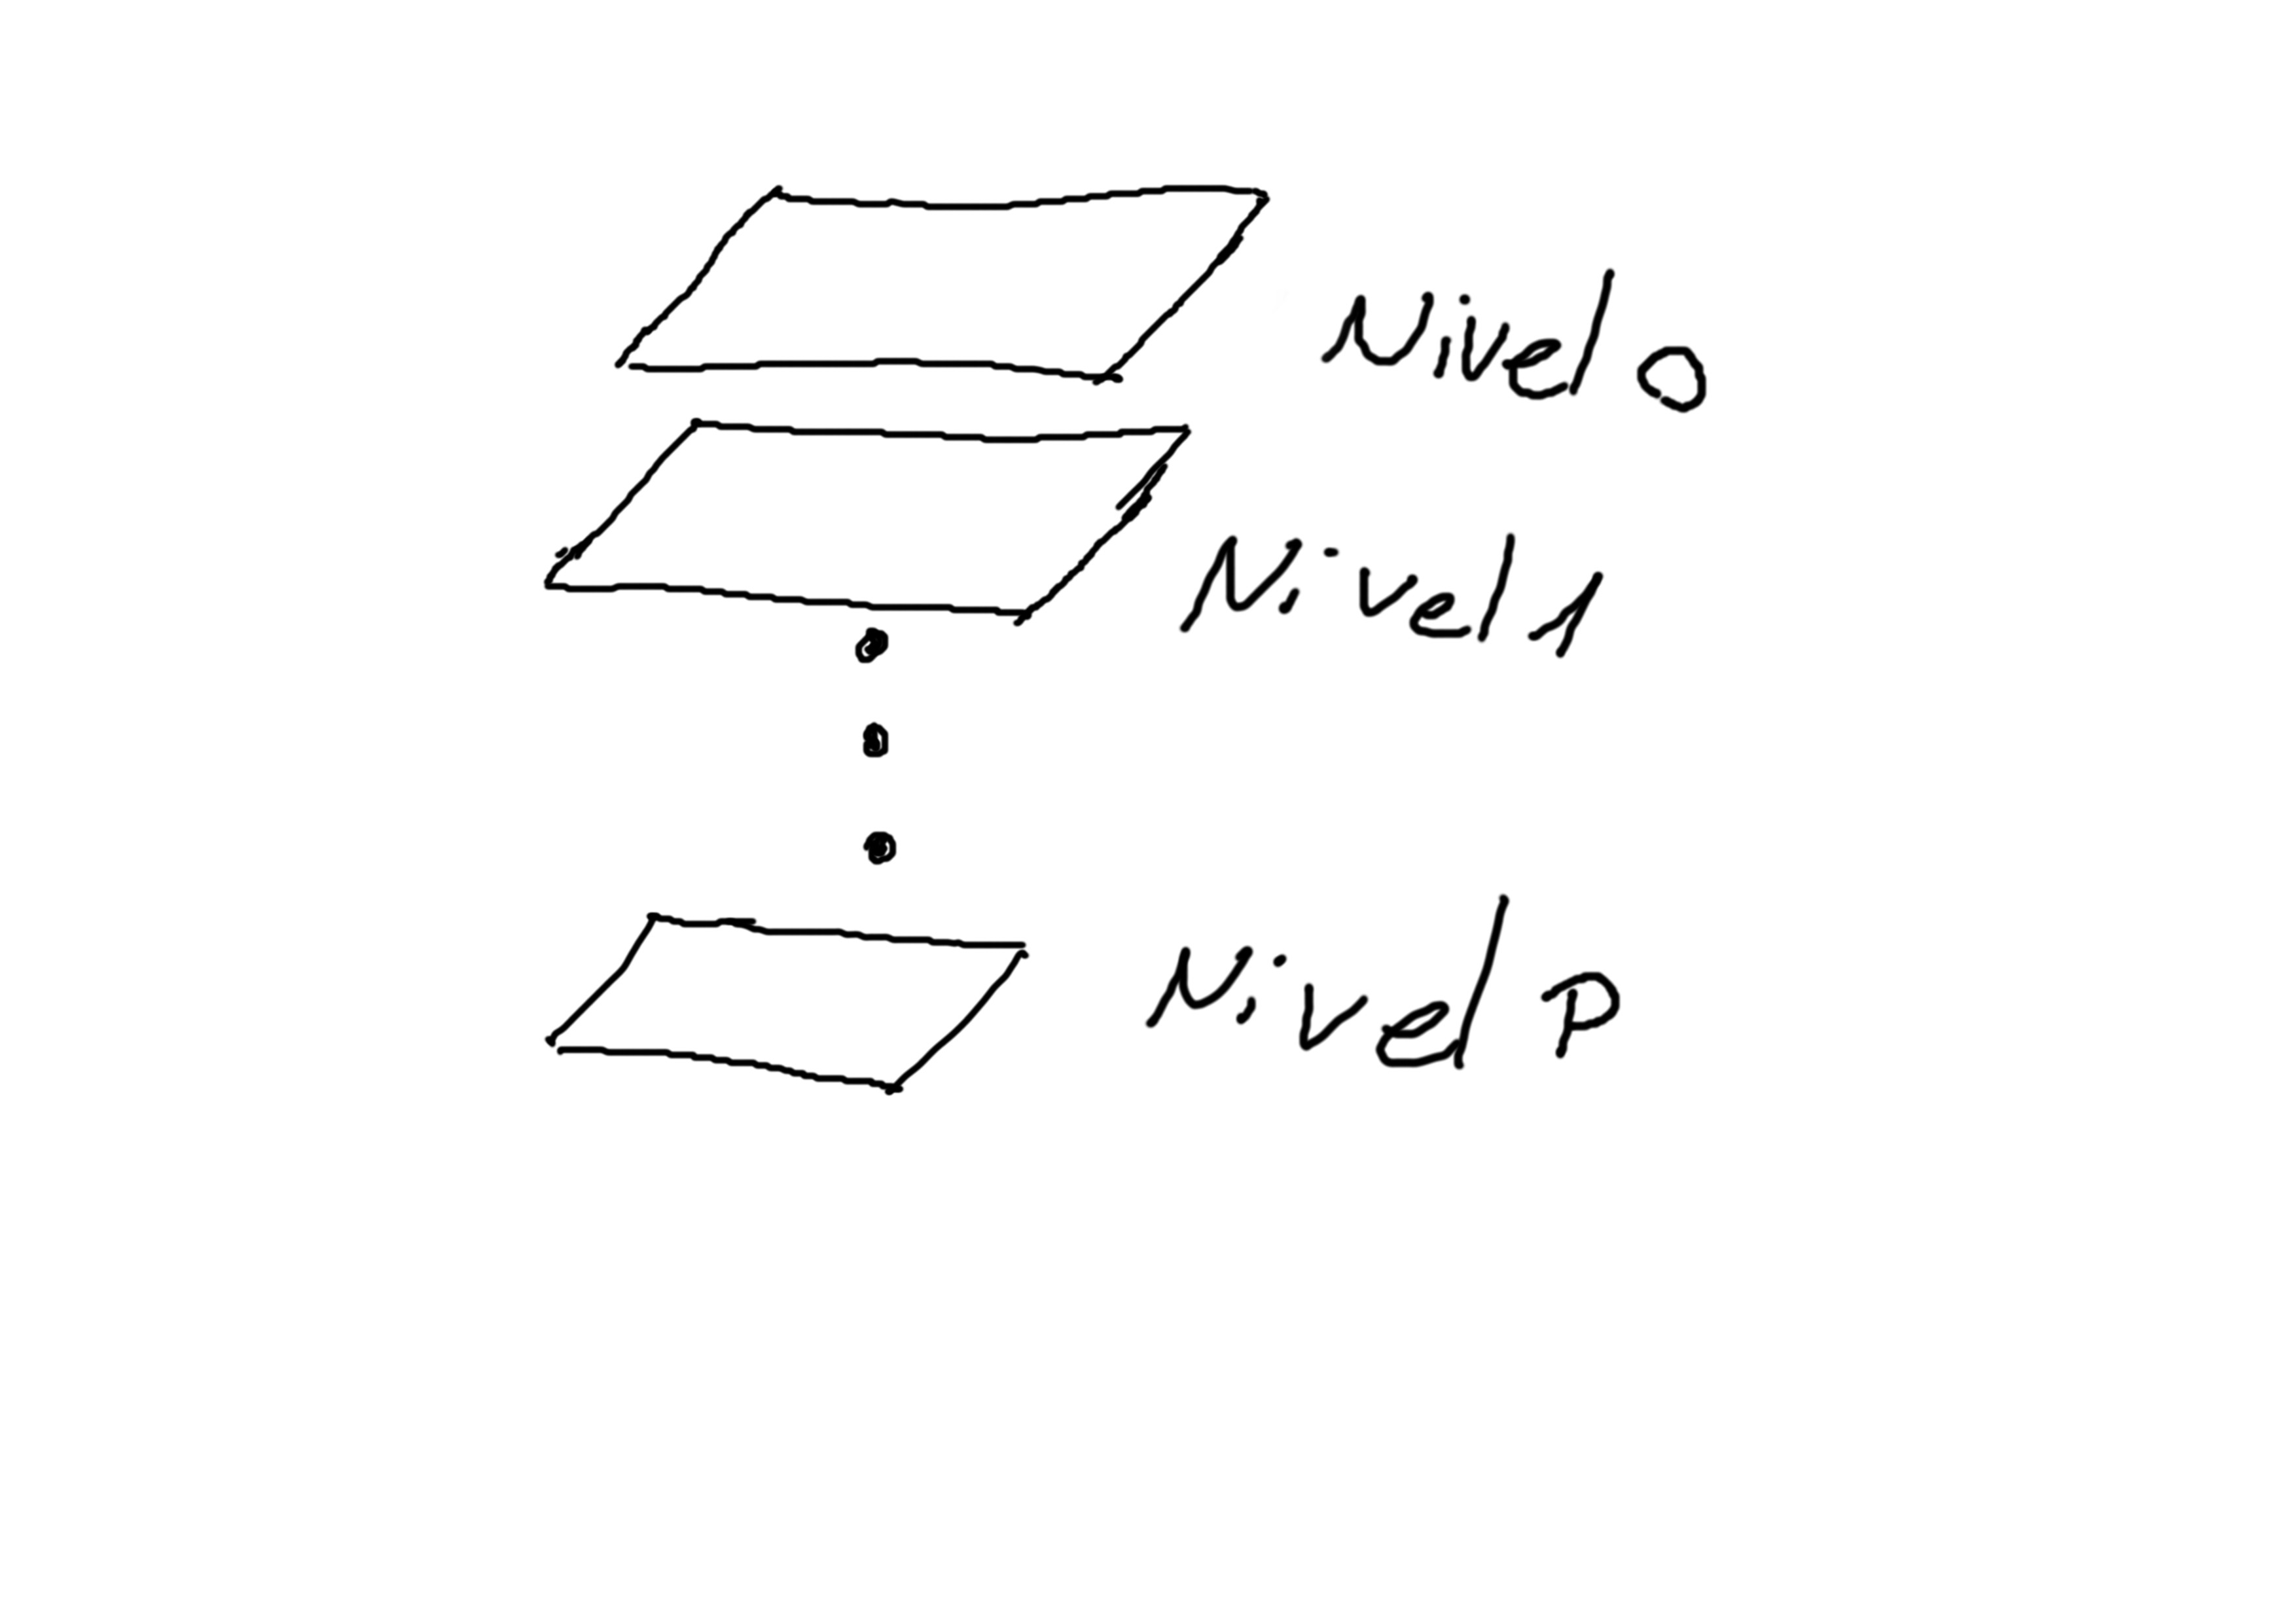 Nivel 0
Nivel 1
Nivel P